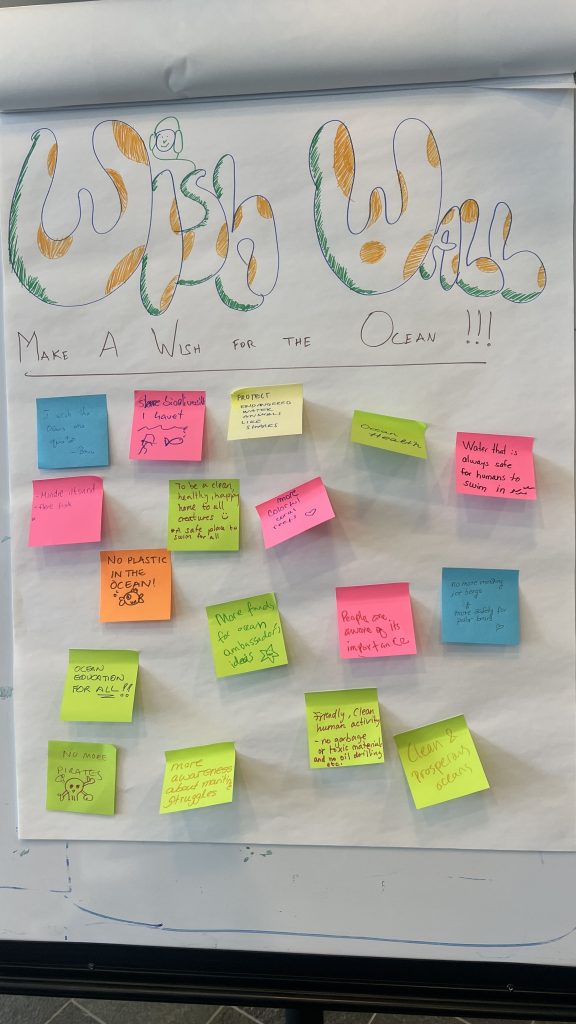 Wish Wall
MAKE A WISH FOR THE OCEAN !!!
I wish the
I have
PROTECT
ENDANGERED
WATER
ANIMALS
LIKE
SHARKS
Ocean
Health
Water that is
always safe
for humans to
swim in
To be a clean,
healthy, happy
home to all
creatures
A safe place to
swim for all
more
colorful
coral
reefs
NO PLASTIC
IN THE
OCEAN!
More funds
for ocean
ambassador's
ideas
People are
aware of its
no more melting
ice bergs
&
more safety for
polar bears
OCEAN
EDUCATION
FOR ALL !!
Friendly, Clean
human activity
- no garbage
or toxic material
and no oil drilling
etc.
Clean &
prosperous
oceans
NO MORE
PIRATES
more
awareness
about
struggles